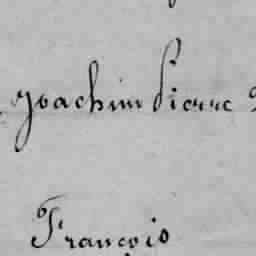 Joachim Pierre
François